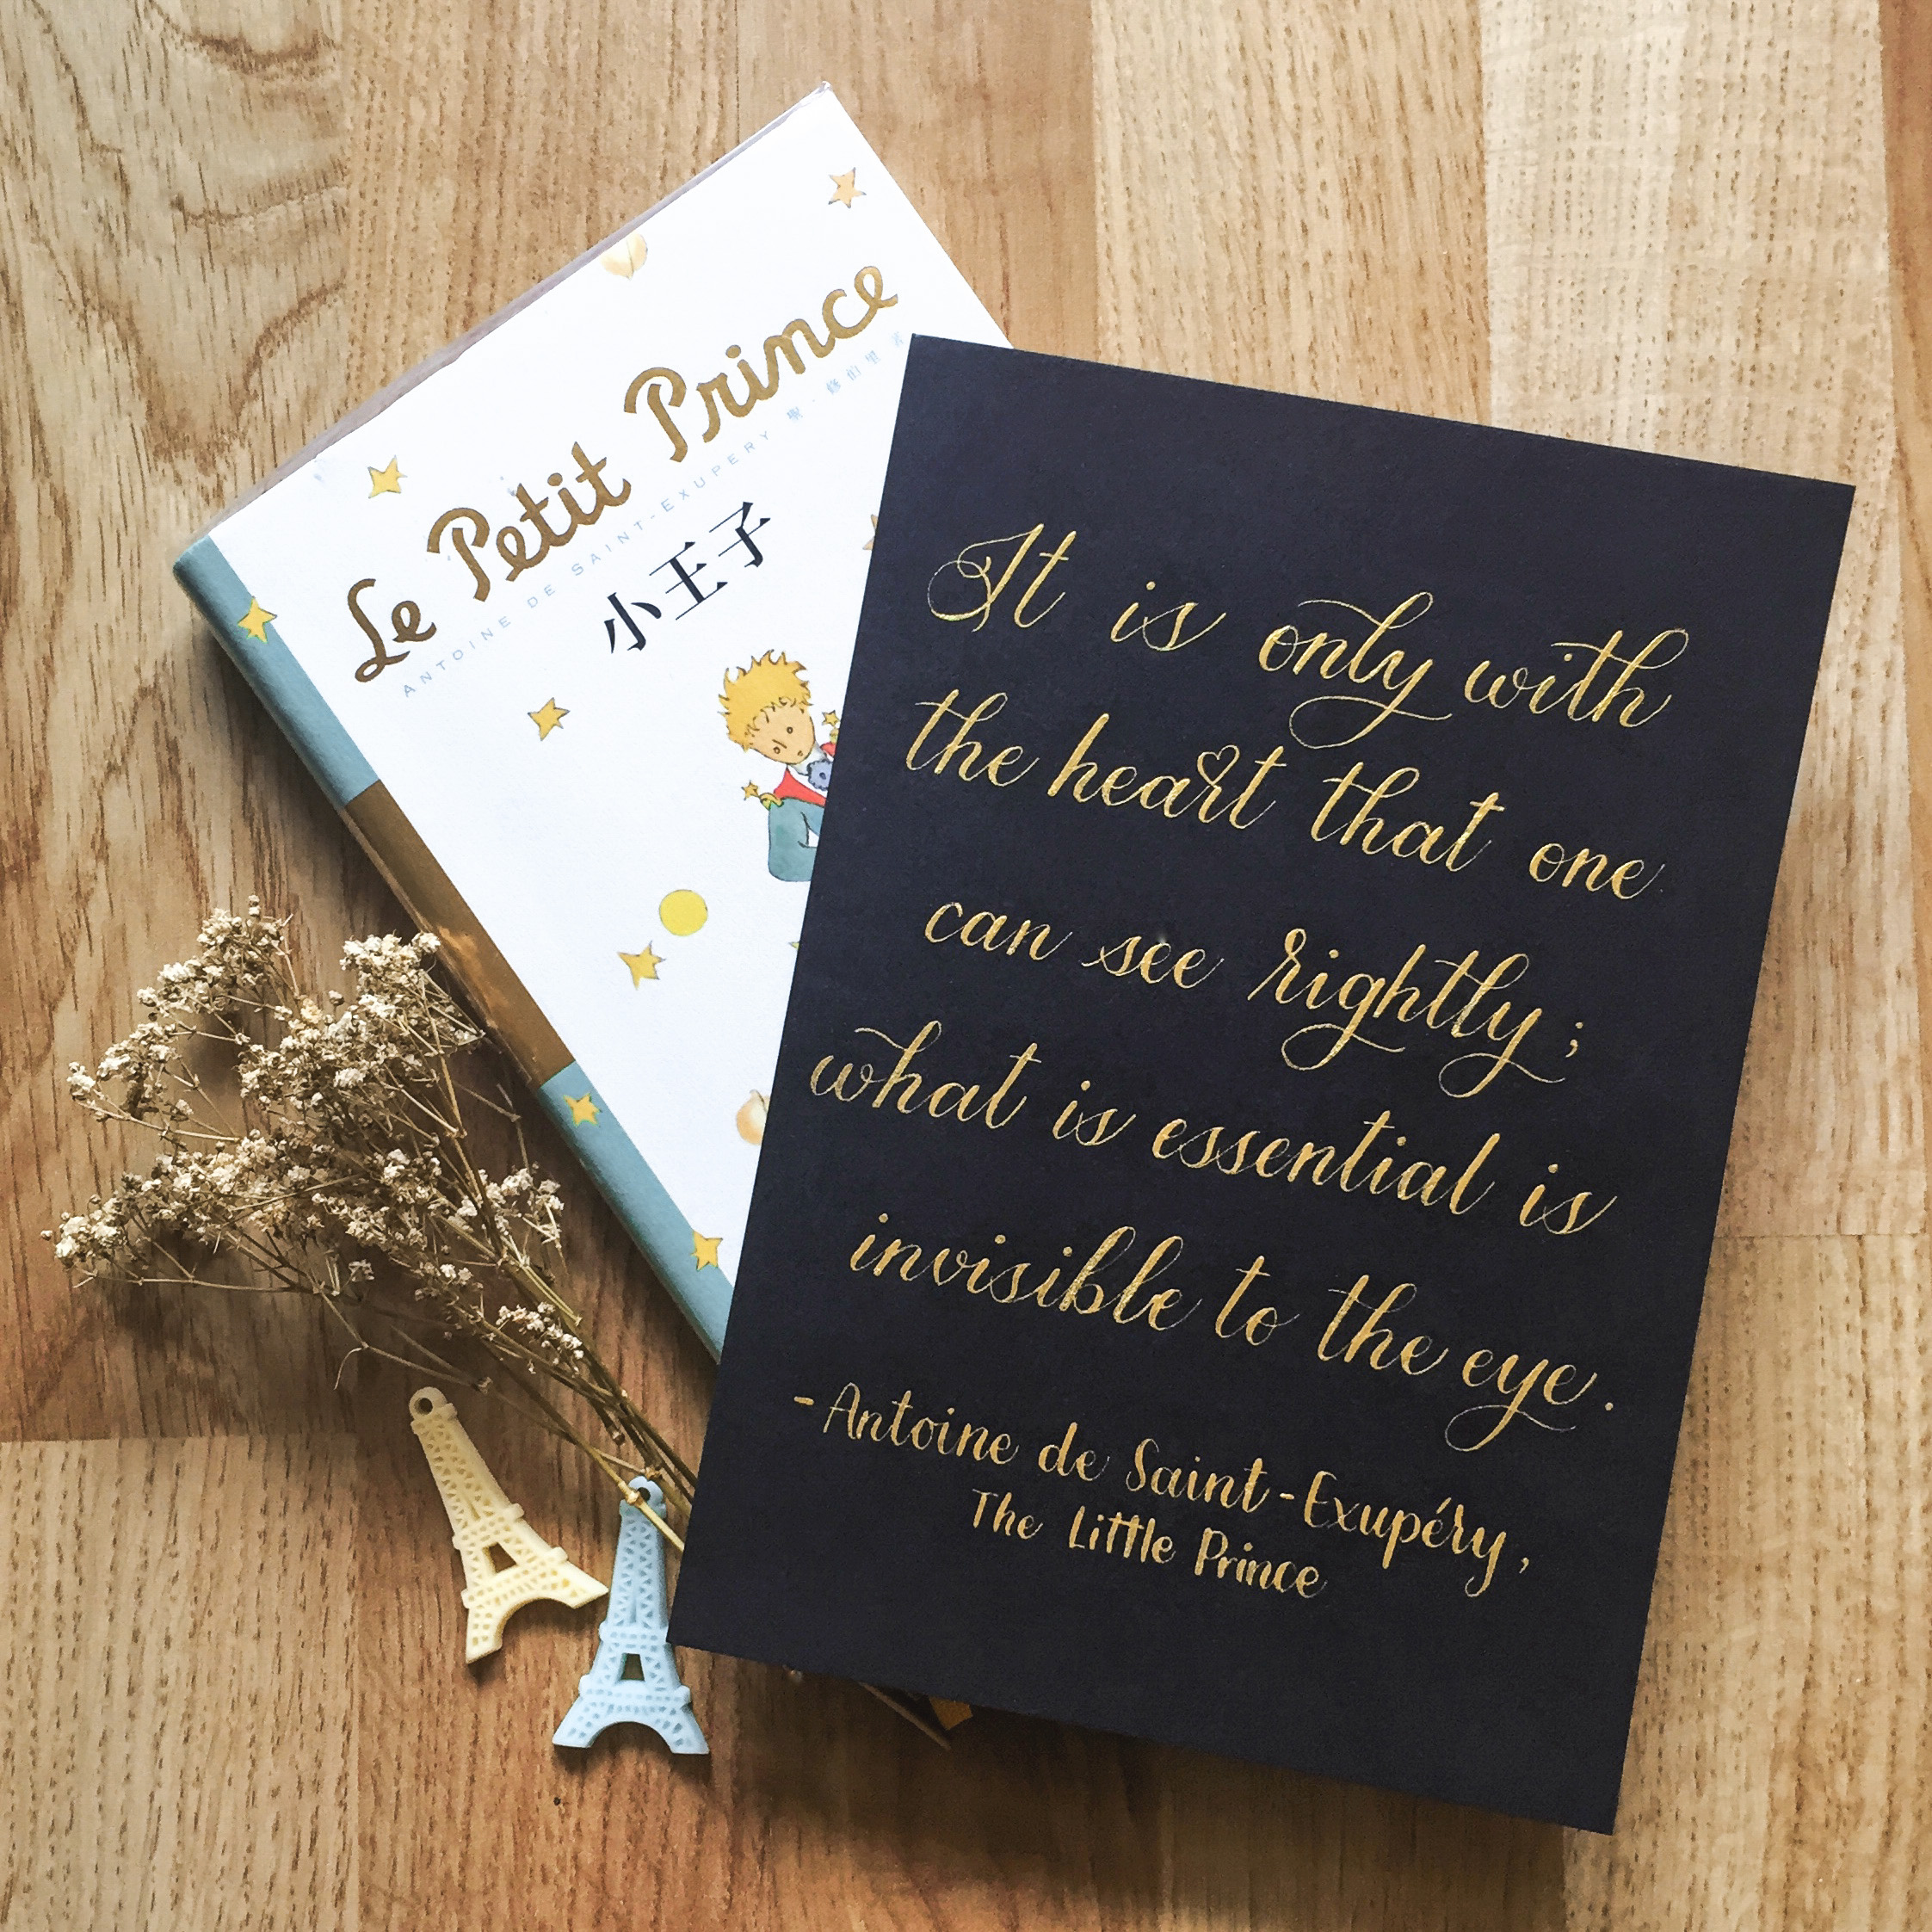 Le Petit Prince
ANTOINE DE SAINT-EXUPERY 聖·修伯里 著
小王子
It is only with
the heart that one
can see rightly;
what is essential is
invisible to the eye.
-Antoine de Saint-Exupéry,
The Little Prince